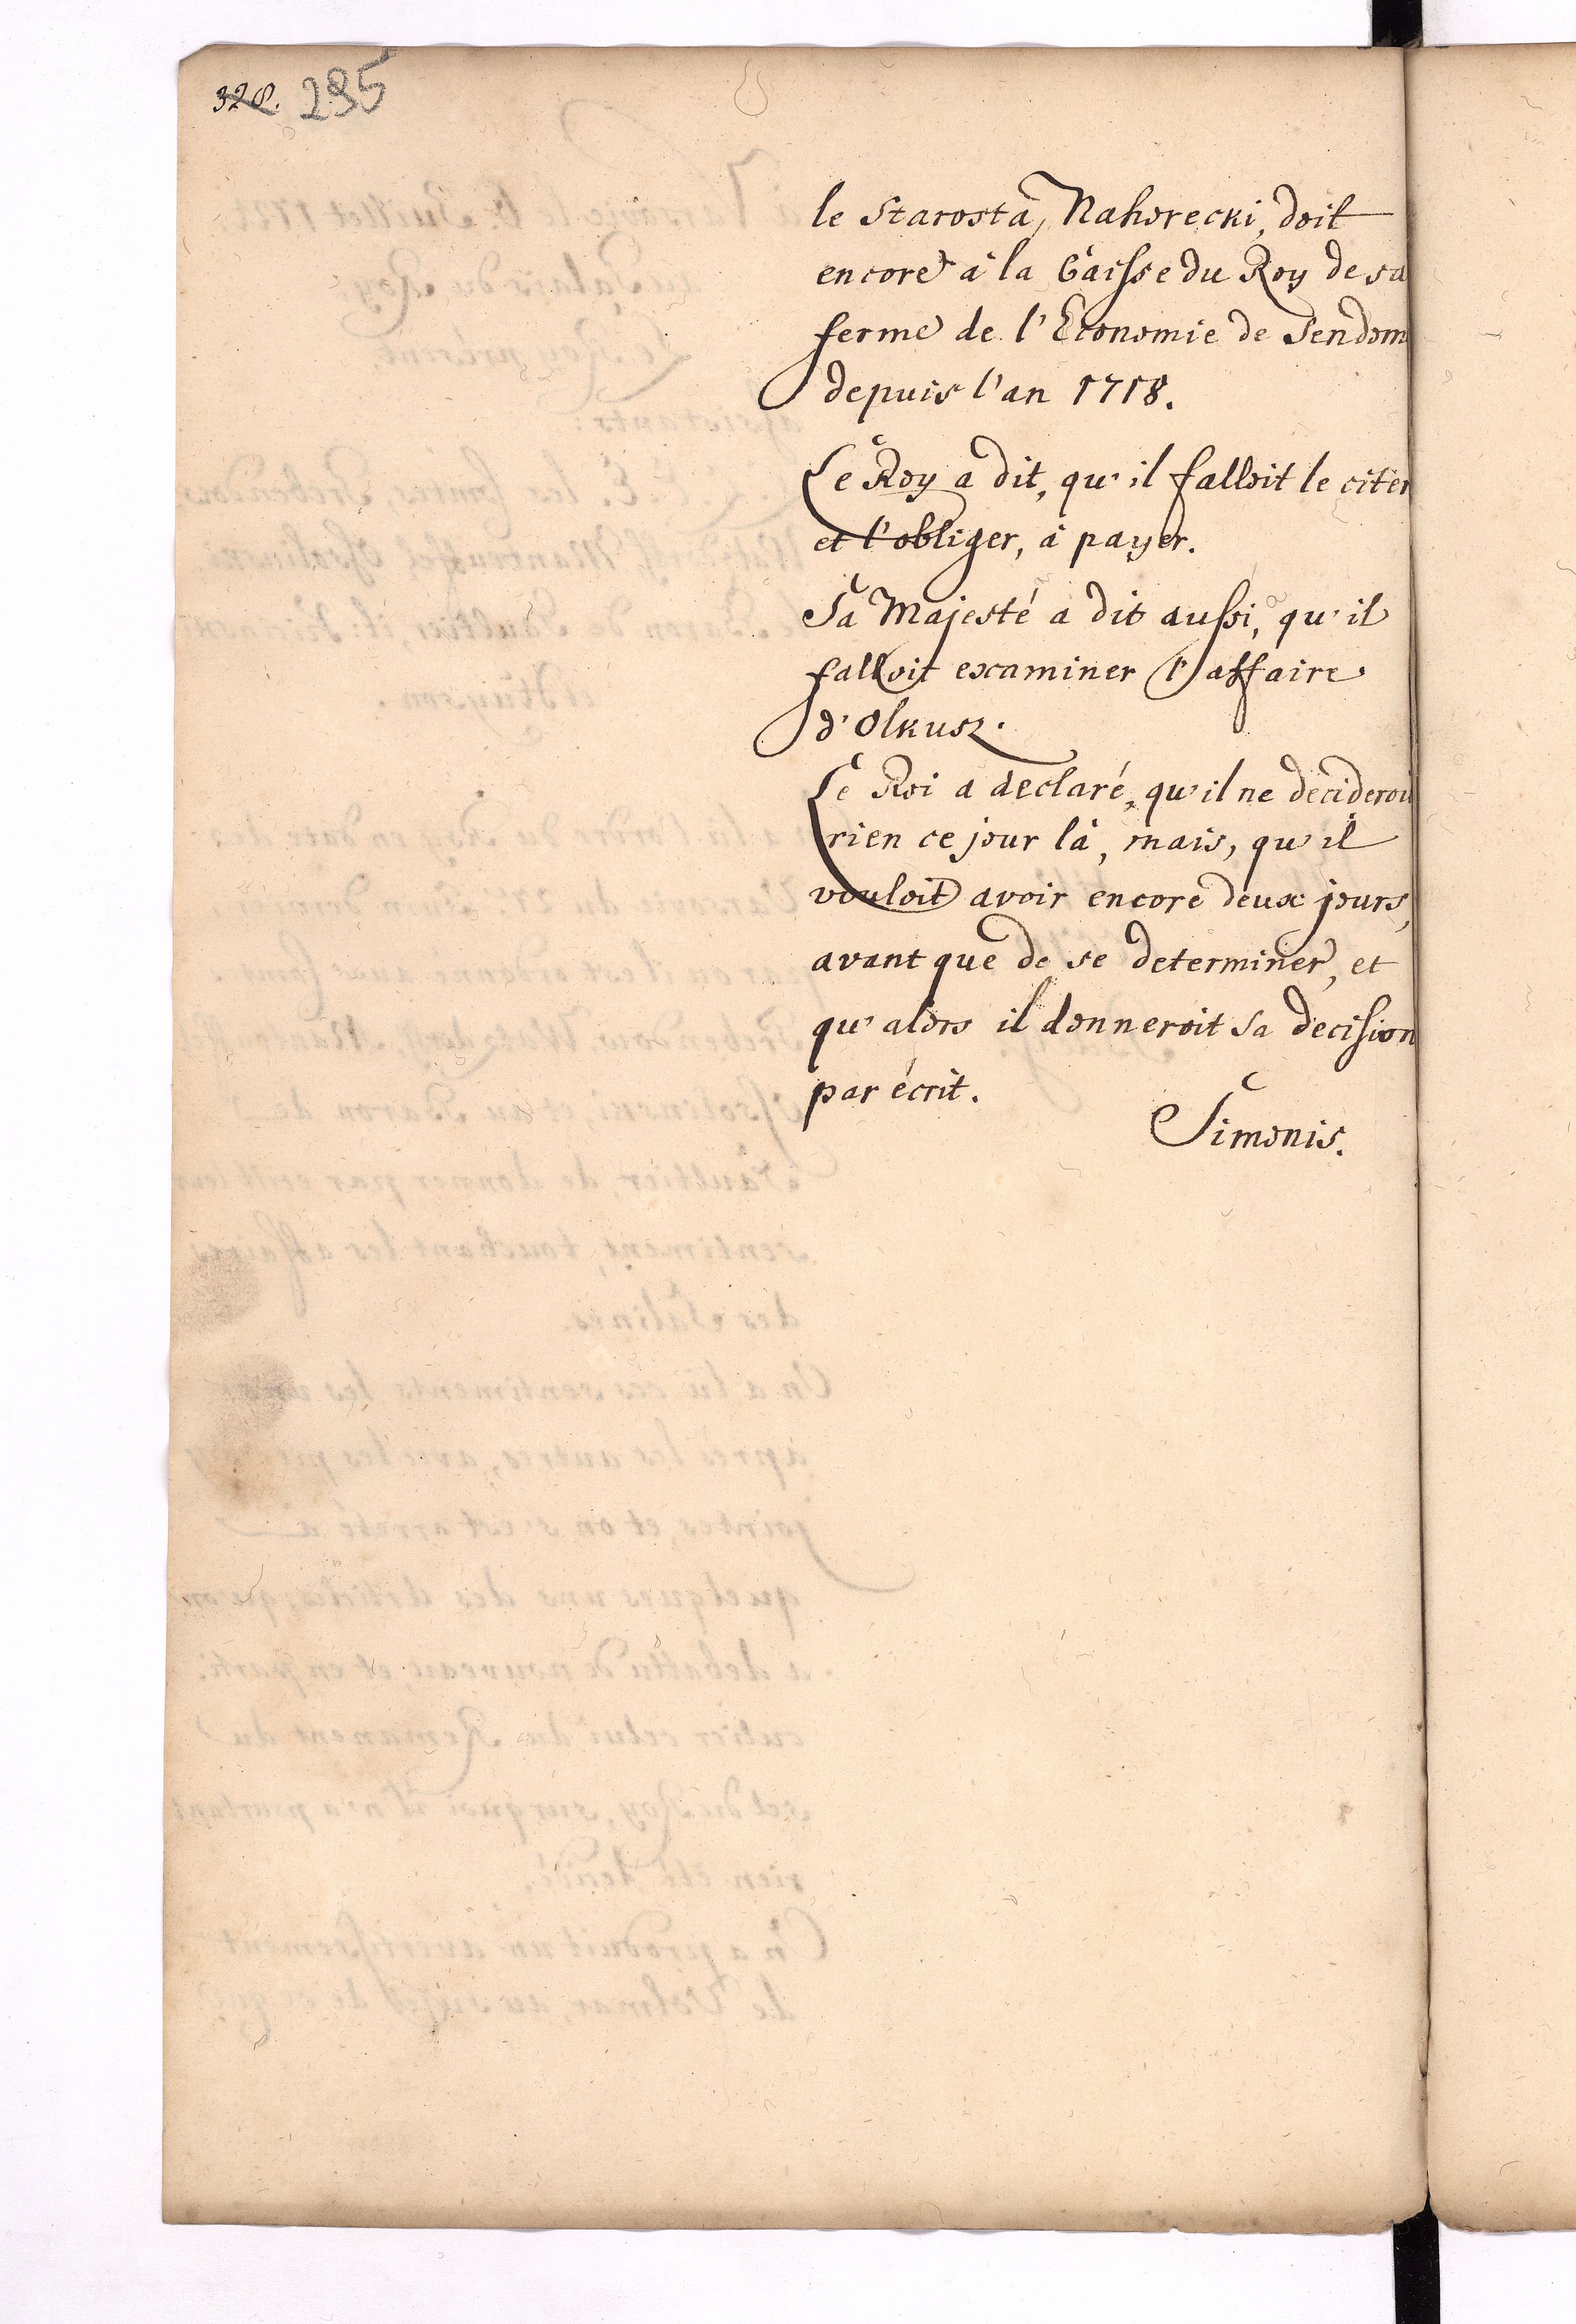 328. 295
le Starosta, Nahorecki, doit
encore à la Caisse du Roy de sa
ferme de l'Economie de Sendom
depuis l'an 1718.
Le Roy a dit, qu'il falloit le citer
et l'obliger, à payer.
Sa Majesté a dit aussi, qu'il
falloit examiner l'affaire
d'Olkusz.
Le Roi a declaré, qu'il ne decideroit
rien ce jour là, mais, qu'il
vouloit avoir encore deux jours,
avant que de se determiner, et
qu'alors il donneroit sa decision
par écrit.
Simonis.